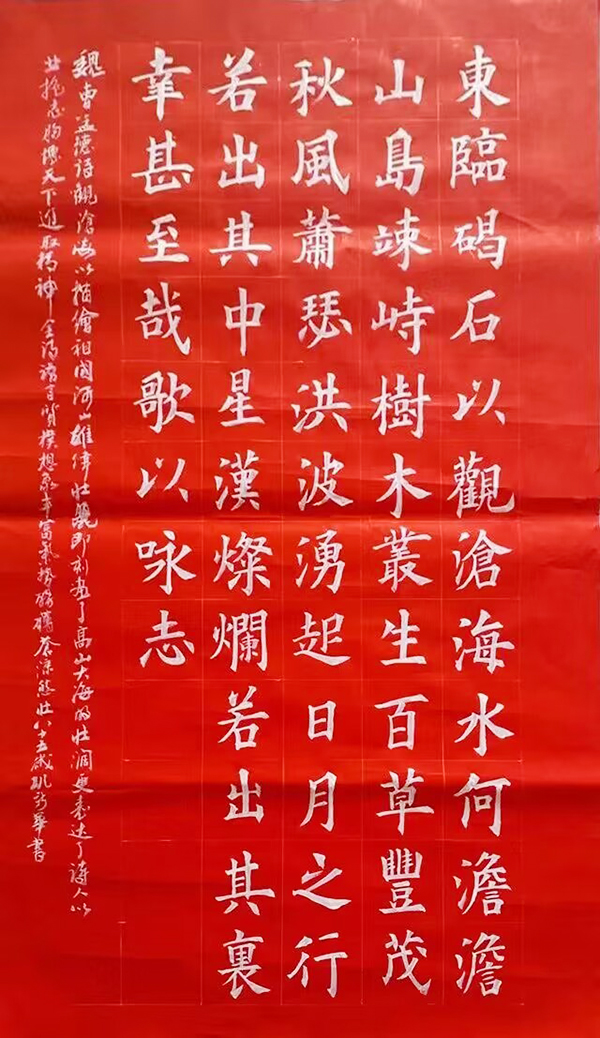 東臨碣石以觀滄海水何澹澹
山島竦峙樹木叢生百草豐茂
秋風蕭瑟洪波湧起日月之行
若出其中星漢燦爛若出其裏
幸甚至哉歌以咏志
魏曹孟德詩觀滄海以描繪祖國河山雄偉壯觀即刻畫了高山大海的壯濶更表达了詩人以
志胸懷天下進取精神全詩語言質樸想象丰富氣勢磅礴蒼涼悲壯八十五歲華書